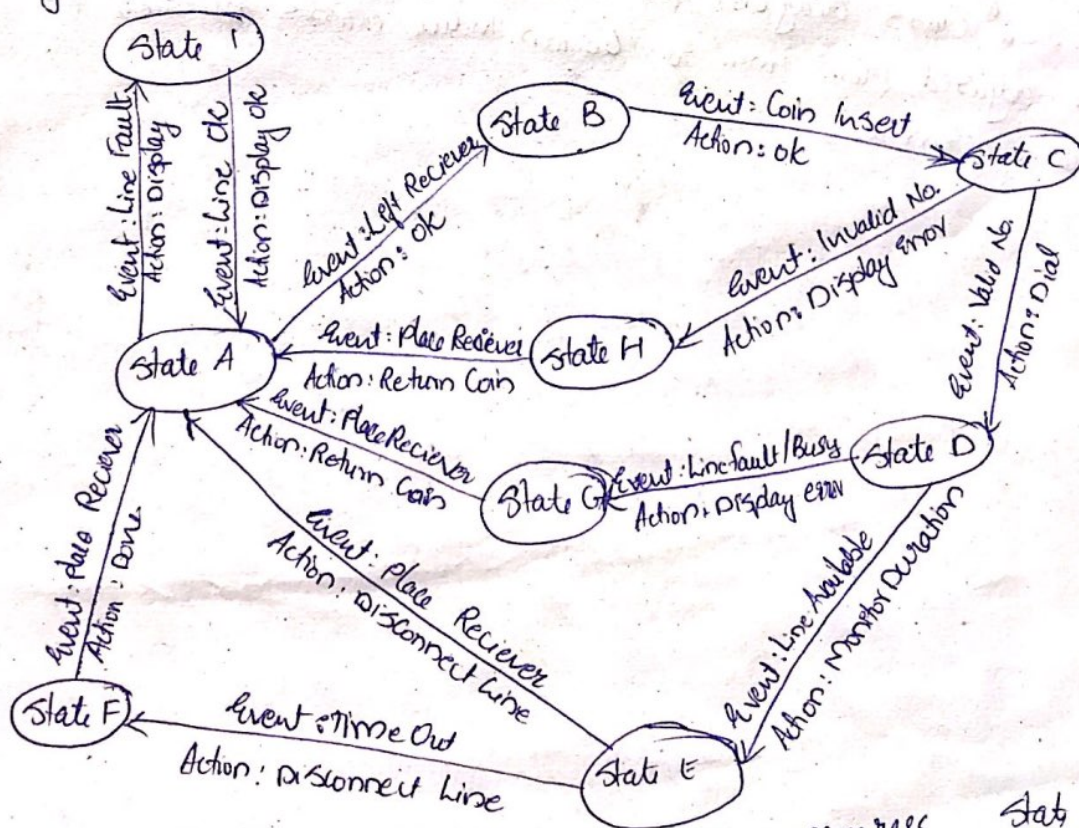 State 1
Event: Line Fault
Action: Display
Event: Line OK
Action: Display OK
State B
Event: Coin Insert
Action: OK
State C
Event: Left Reciever
Action: OK
Event: Invalid No.
Action: Display error
Event: Valid No.
Action: Dial
State A
Event: Place Reciever
Action: Return Coin
State H
Event: Place Reciever
Action: Return Coin
State G
Event: Line fault/Busy
Action: Display error
State D
Event: Place Reciever
Action: Done
Event: Place Reciever
Action: Disconnect Line
Event: Line Available
Action: Monitor Duration
State F
Event: Time Out
Action: Disconnect Line
State E
State